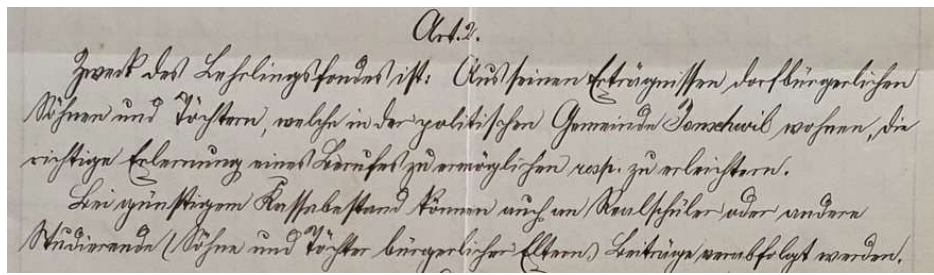 Art. 2.
Zweck des Lehrlingsfondes ist: Aus seinen Erträgnissen dorfbürgerlichen
Söhnen und Töchtern, welche in der politischen Gemeinde Jonschwil wohnen, die
richtige Erlernung eines Berufes zu ermöglichen resp. zu erleichtern.
Bei günstigem Kassabestand können auch an Realschüler oder andere
Studierende (Söhne und Töchter bürgerlicher Eltern) Beiträge verabfolgt werden.